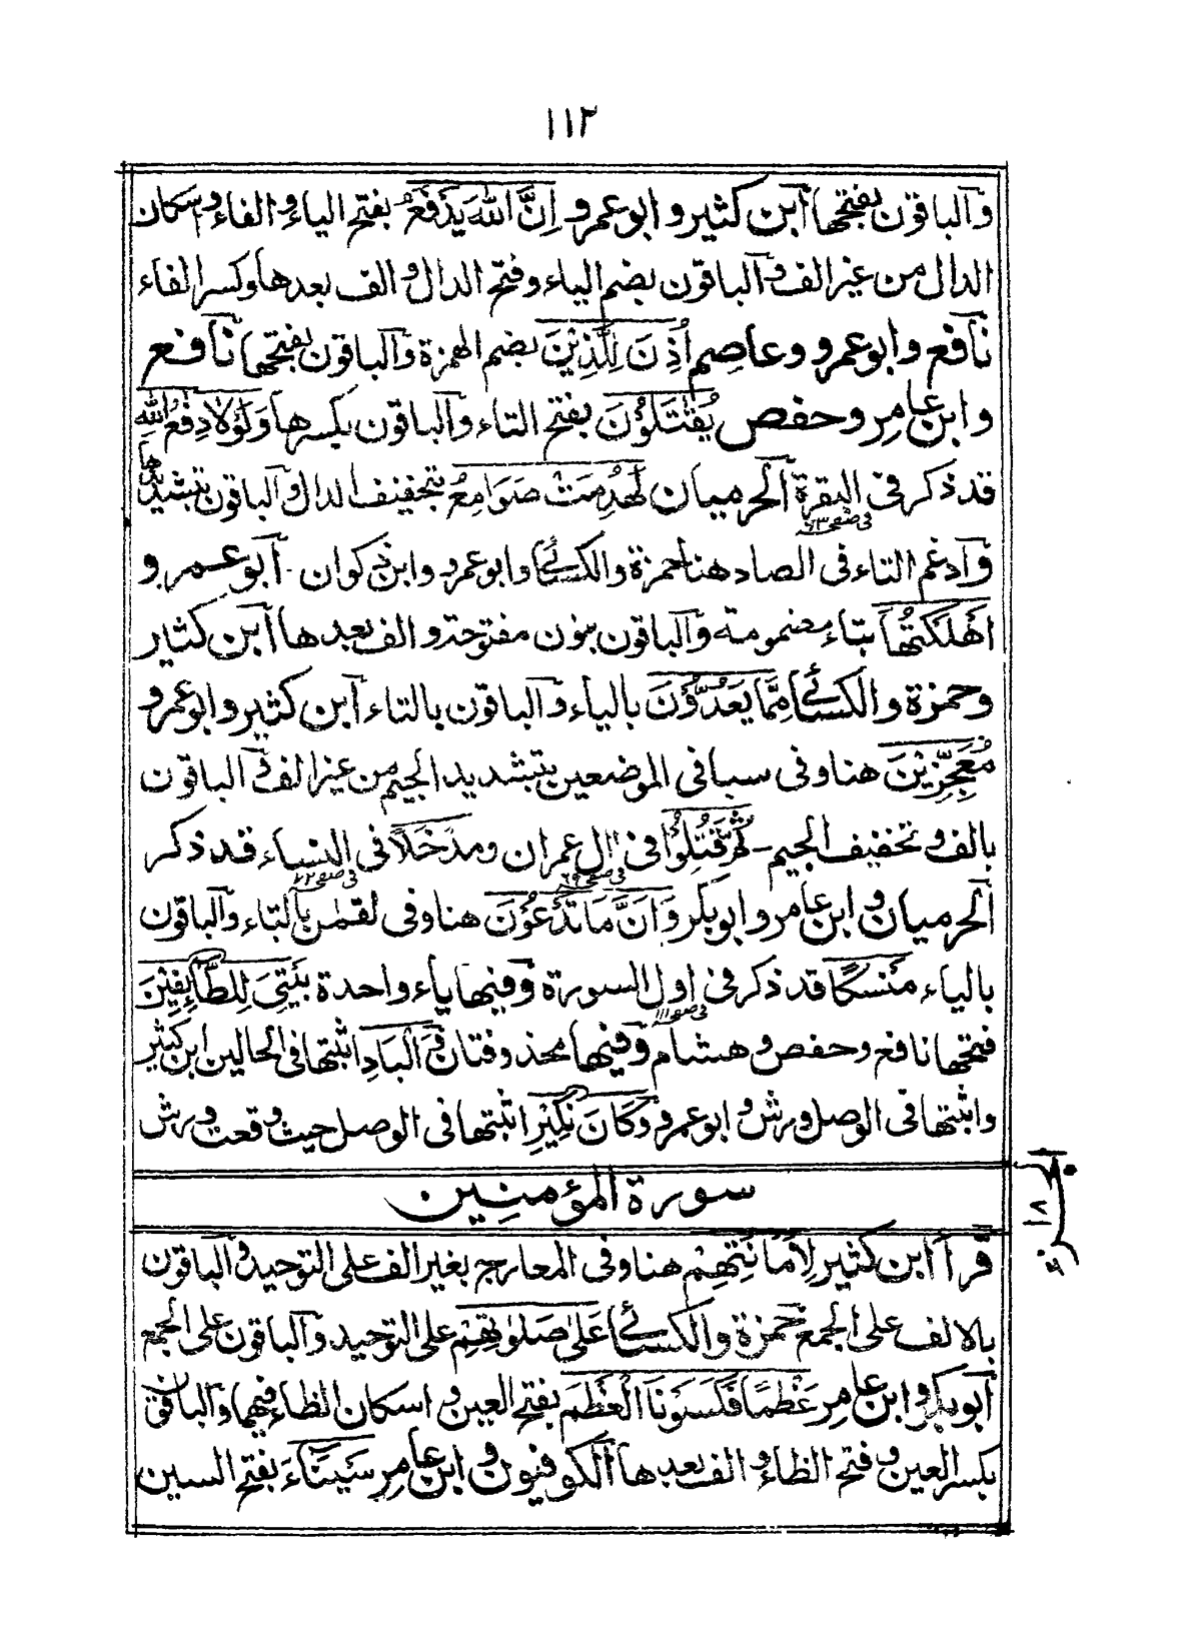 ١١٢
والباقون بفتحها ابن كثير و ابو عمرو اِنَّ اللهَ يَدْفَعُ بفتح الياء و الفاء و اسكان
الدال من غير الف و الباقون بضم الياء و فتح الدال و الف بعدها و كسر الفاء
نافع و ابو عمرو و عاصم اُذِنَ لِلَّذِيْنَ بضم الهمزة و الباقون بفتحها نافع
و ابن عامر و حفص يُقٰتَلُوْنَ بفتح التاء و الباقون بكسرها وَلَوْلَا دِفٰعُ اللهِ
قد ذكر فى البقرة الحرميان لَهُدِمَتْ صَوَامِعُ بتخفيف الدال و الباقون بتشديدها
فى صفحه ٦٣
و ادغم التاء فى الصاد هنا حمزة والكسائى و ابو عمرو وابن ذكوان - ابو عمرو
اَهْلَكْتُهَا بتاء مضمومة و الباقون بنون مفتوحة و الف بعدها ابن كثير
و حمزة و الكسائى مِمَّا يَعُدُّوْنَ بالياء و الباقون بالتاء ابن كثير و ابو عمرو
مُعَجِّزِيْنَ هنا و فى سبا فى الموضعين بتشديد الجيم من غير الف و الباقون
بالف و تخفيف الجيم - ثُمَّ قُتِلُوْا فى ال عمران و مَدْخَلًا فى النساء قد ذكر
الحرميان و ابن عامر و ابو بكر وَ اَنَّ مَا تَدْعُوْنَ هنا و فى لقمٰن بالتاء و الباقون
بالياء مَنْسَكًا قد ذكر فى اول السورة و فيها ياء واحدة بَيْتِىَ لِلطَّائِفِيْنَ
فى صفحه ١١١
فتحها نافع و حفص و هشام و فيها محذوفتان وَ الْبَادِ اثبتها فى الحالين ابن كثير
و اثبتها فى الوصل ورش و ابو عمرو و كَانَ نَكِيْرِ اثبتها فى الوصل حيث وقعت ورش
الجزء ١٨
سورة المؤمنين
قرأ ابن كثير لِاَمَانَتِهِمْ هنا و فى المعارج بغير الف على التوحيد و الباقون
بالالف على الجمع حمزة و الكسائى عَلٰى صَلٰوتِهِمْ على التوحيد و الباقون على الجمع
ابو بكر و ابن عامر عَظْمًا فَكَسَوْنَا الْعَظْمَ بفتح العين و اسكان الظاء فيهما و الباقون
بكسر العين و فتح الظاء و الف بعدها الكوفيون و ابن عامر سَيْنَاءَ بفتح السين